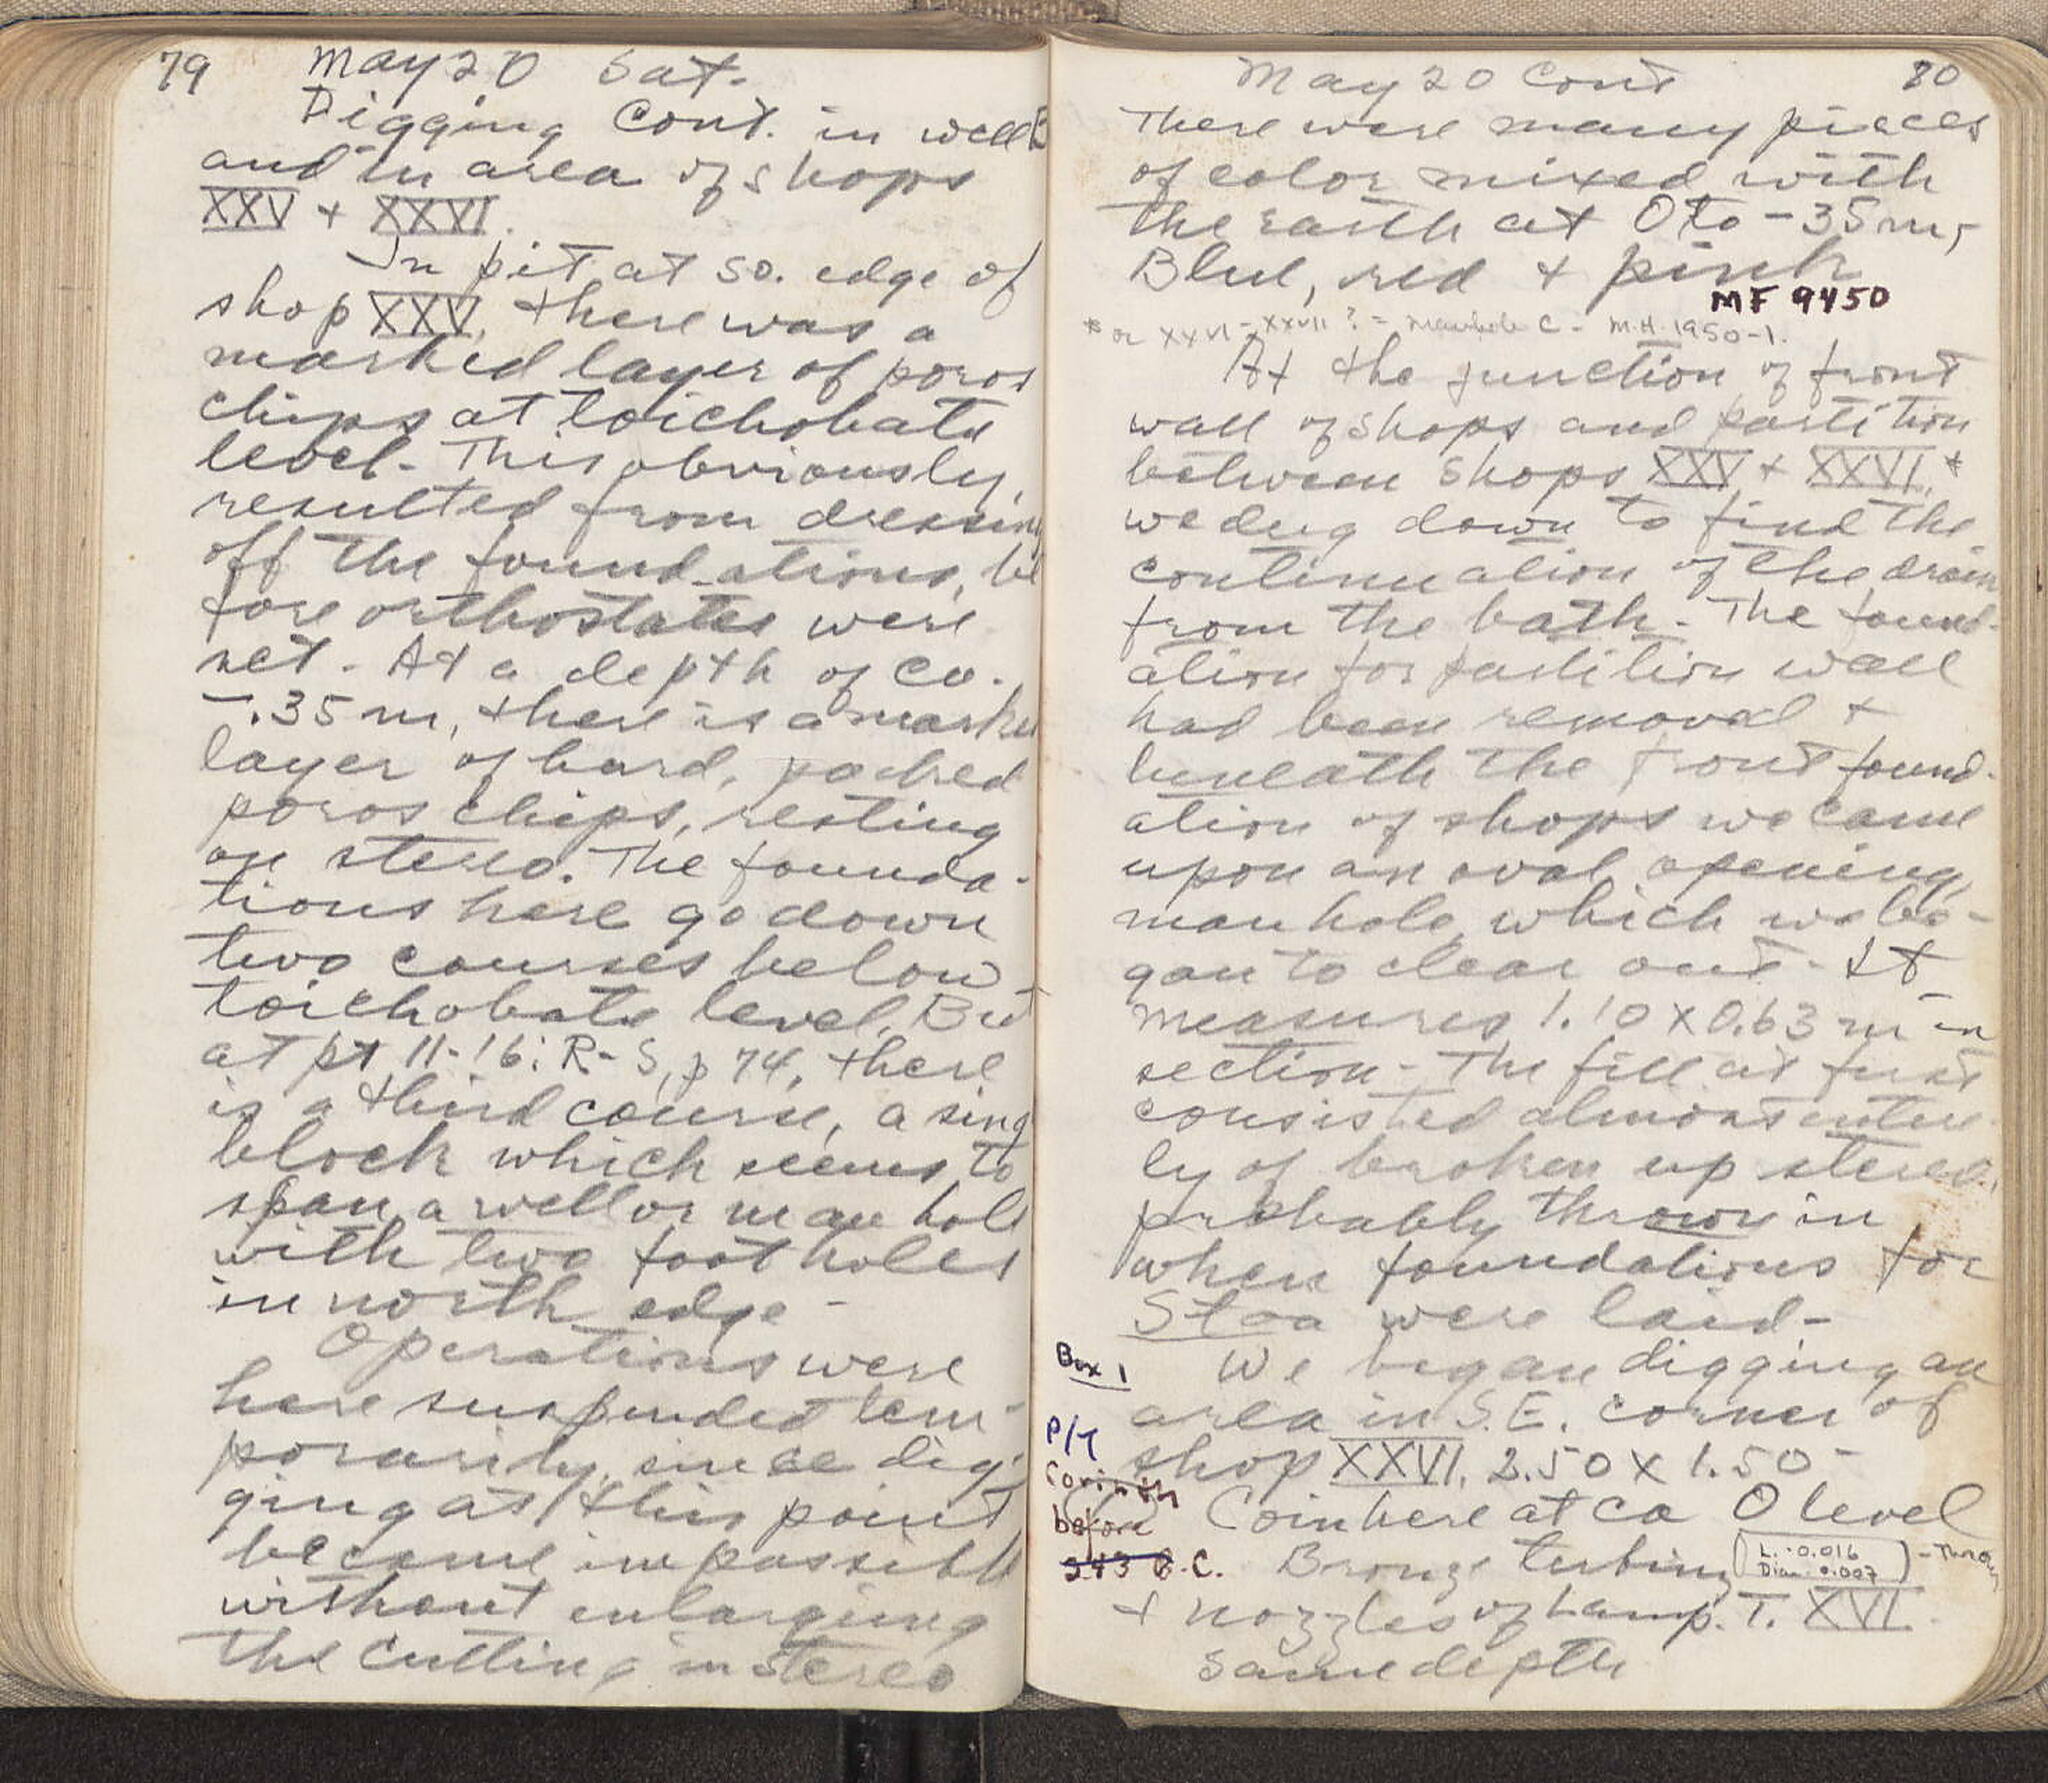 79 May 20 Sat.
Digging Cont. in well
and in area of shops
XXV + XXVI.
In pit at so. edge of
shop XXV, there was a
marked layer of poros
chips at toichobate
level. This obviously
resulted from dressing
off the foundations, be
fore orthostates were
set. At a depth of ca.
-.35 m, there is a marked
layer of hard, packed
poros chips, resting
on stereo. The founda-
tions here go down
two courses below
toichobate level. But
at pt 11-16: R-S, p 74, there
is a third course, a sing
block which seems to
span a well or man hole
with two foot holes
in north edge -
Operations were
here suspended tem-
porarily, since dig-
ging at this point
became impossible
without enlarging
the cutting in stereo
May 20 Cont 80
There were many pieces
of color mixed with
the earth at 0 to -35 m,
Blue, red + pink
MF 9450
* or XXVI - XXVII ? = Manhole C - M.H. 1950-1.
At the junction of front
wall of shops and partition
between Shops XXV + XXVI, *
we dug down to find the
continuation of the drain
from the bath. The found-
ation for partition wall
had been removed +
beneath the front found-
ation of shops we came
upon an oval opening,
manhole, which we be-
gan to clear out. It
measures 1.10 x 0.63 m in
section - The fill at first
consisted almost entire
ly of broken up stereo,
probably thrown in
when foundations for
Stoa were laid -
Box 1
We began digging an
area in S.E. corner of
shop XXVI, 2.50 x 1.50 -
P/T
Corinth
before
243 B.C.
Coin here at ca 0 level
Bronze tubing (L. : 0.016
Diam: 0.007)
+ nozzles of Lamp. T. XVI.
Same depth